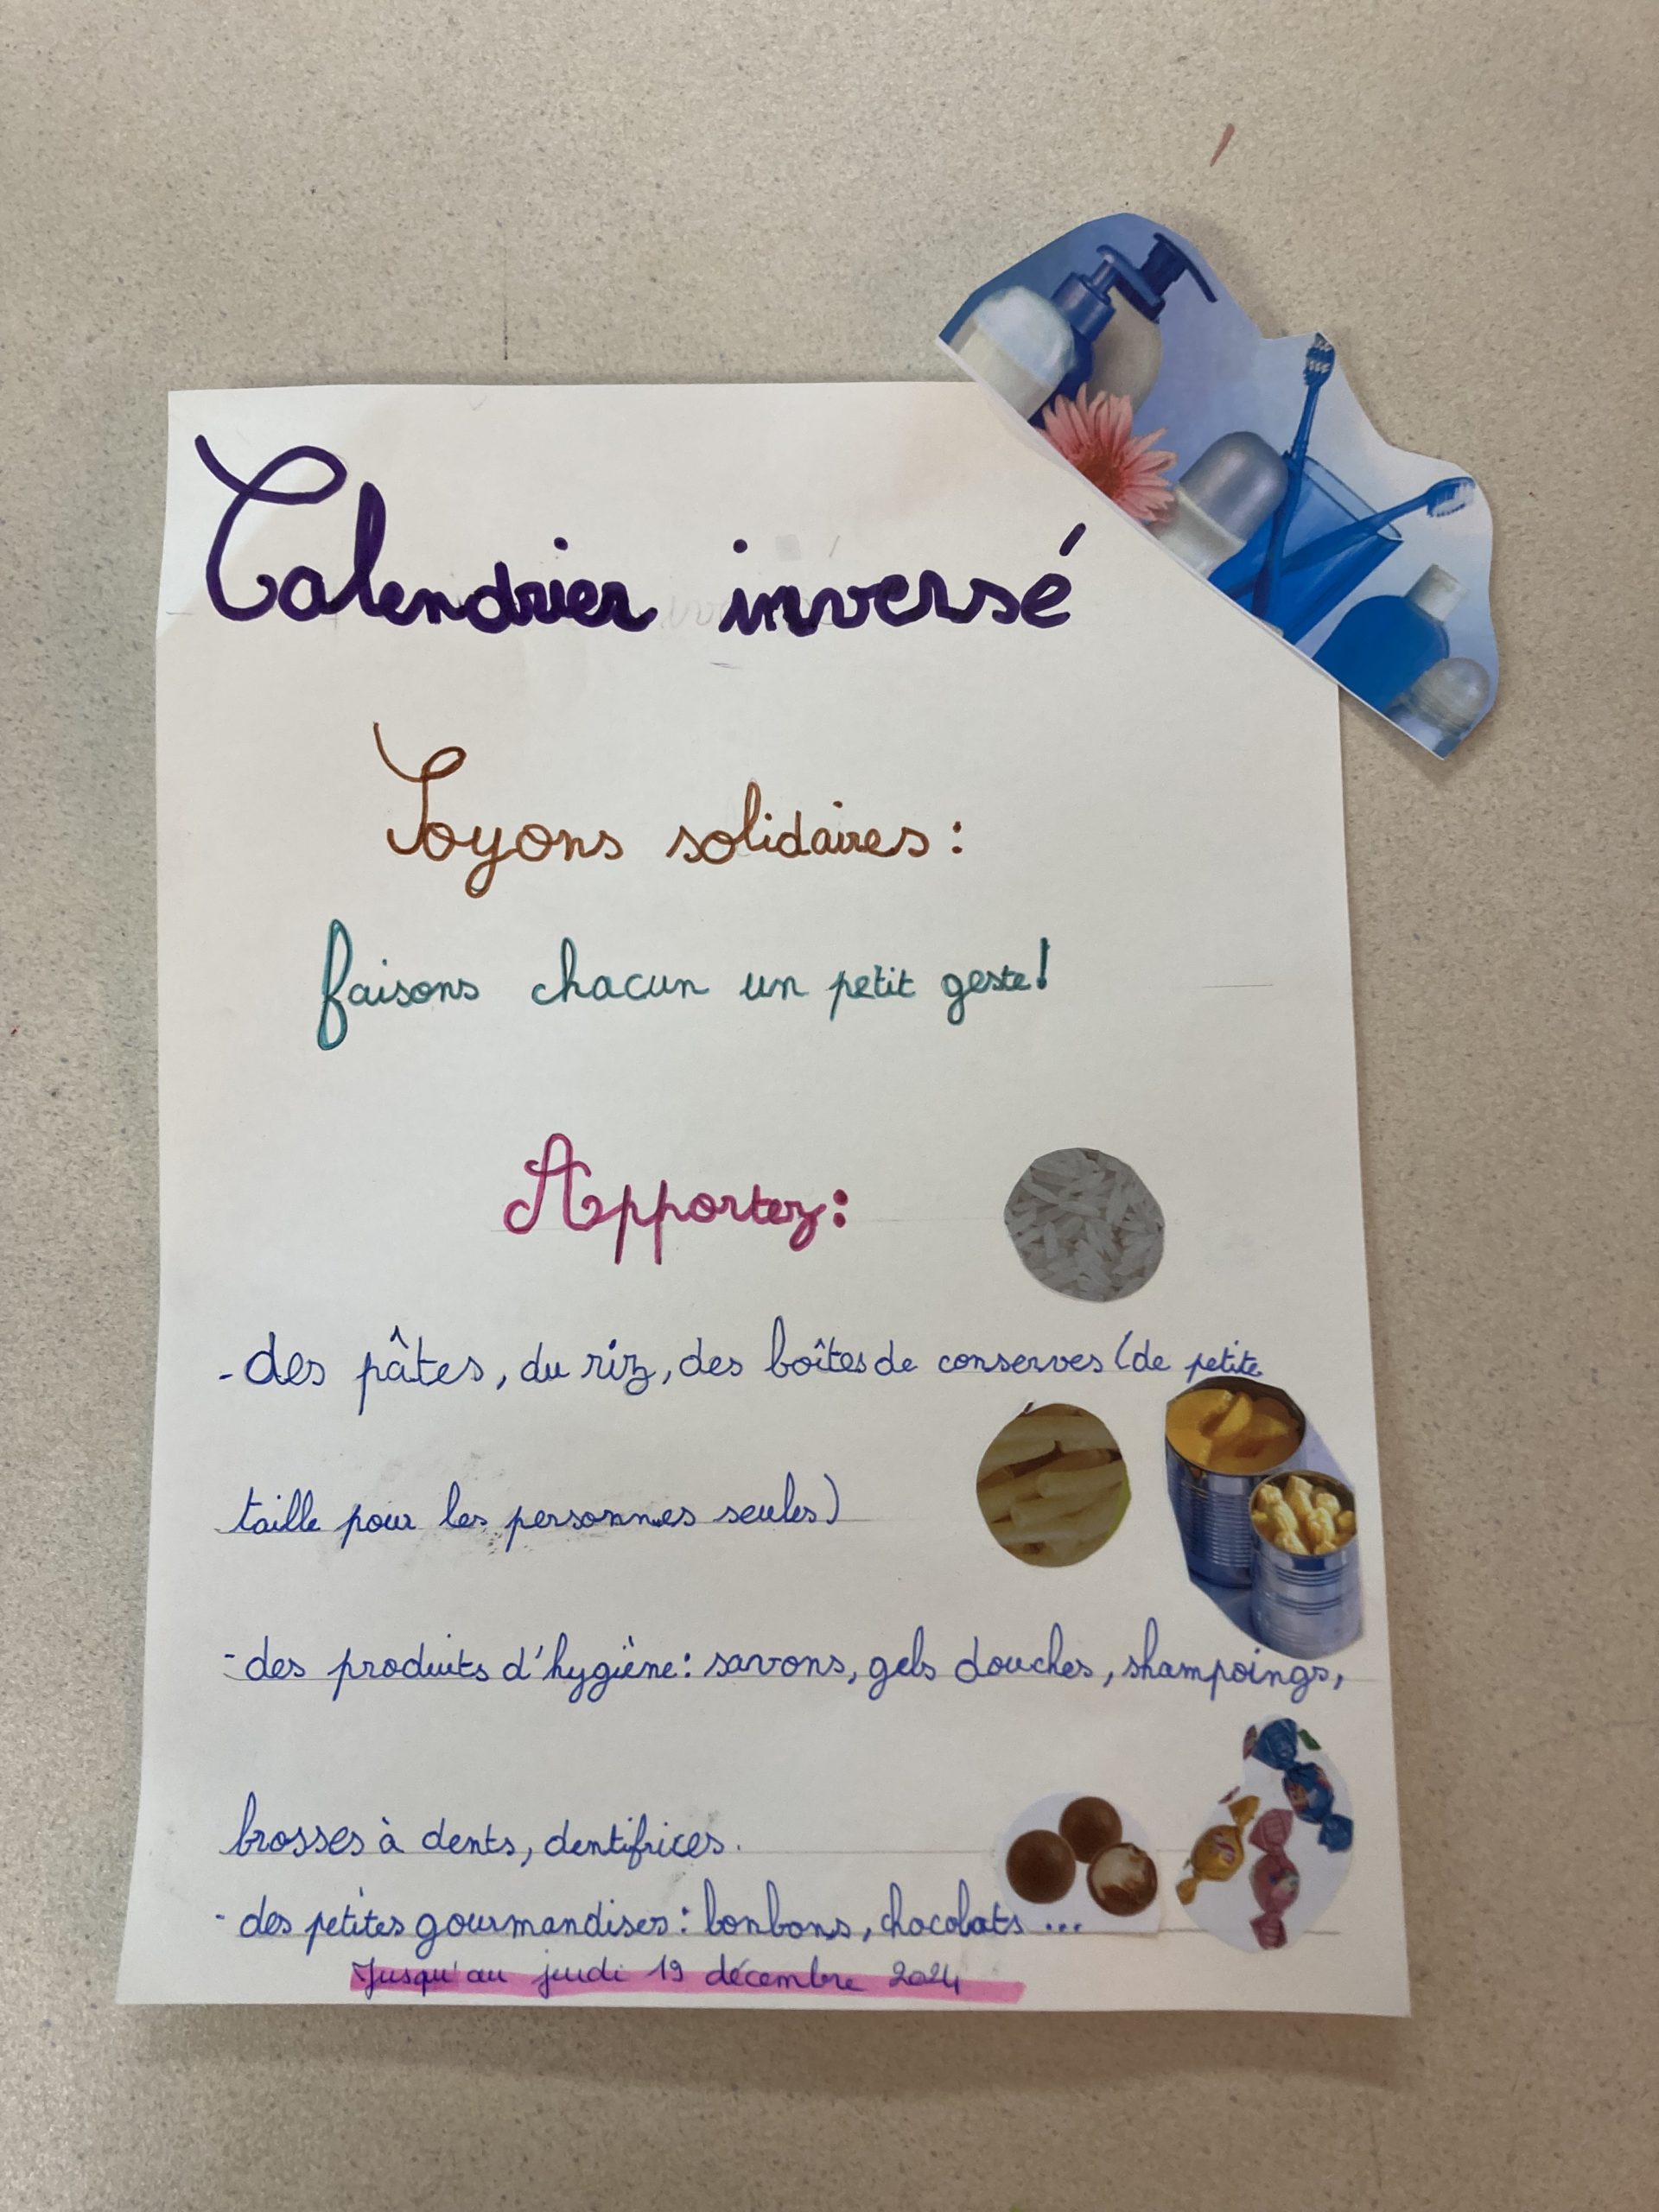 Calendrier inversé
Soyons solidaires :
faisons chacun un petit geste!
Apportez :
- des pâtes, du riz, des boîtes de conserves (de petite
taille pour les personnes seules)
- des produits d'hygiène : savons, gels douches, shampoings,
brosses à dents, dentifrices.
- des petites gourmandises : bonbons, chocolats ...
Jusqu'au jeudi 19 décembre 2024